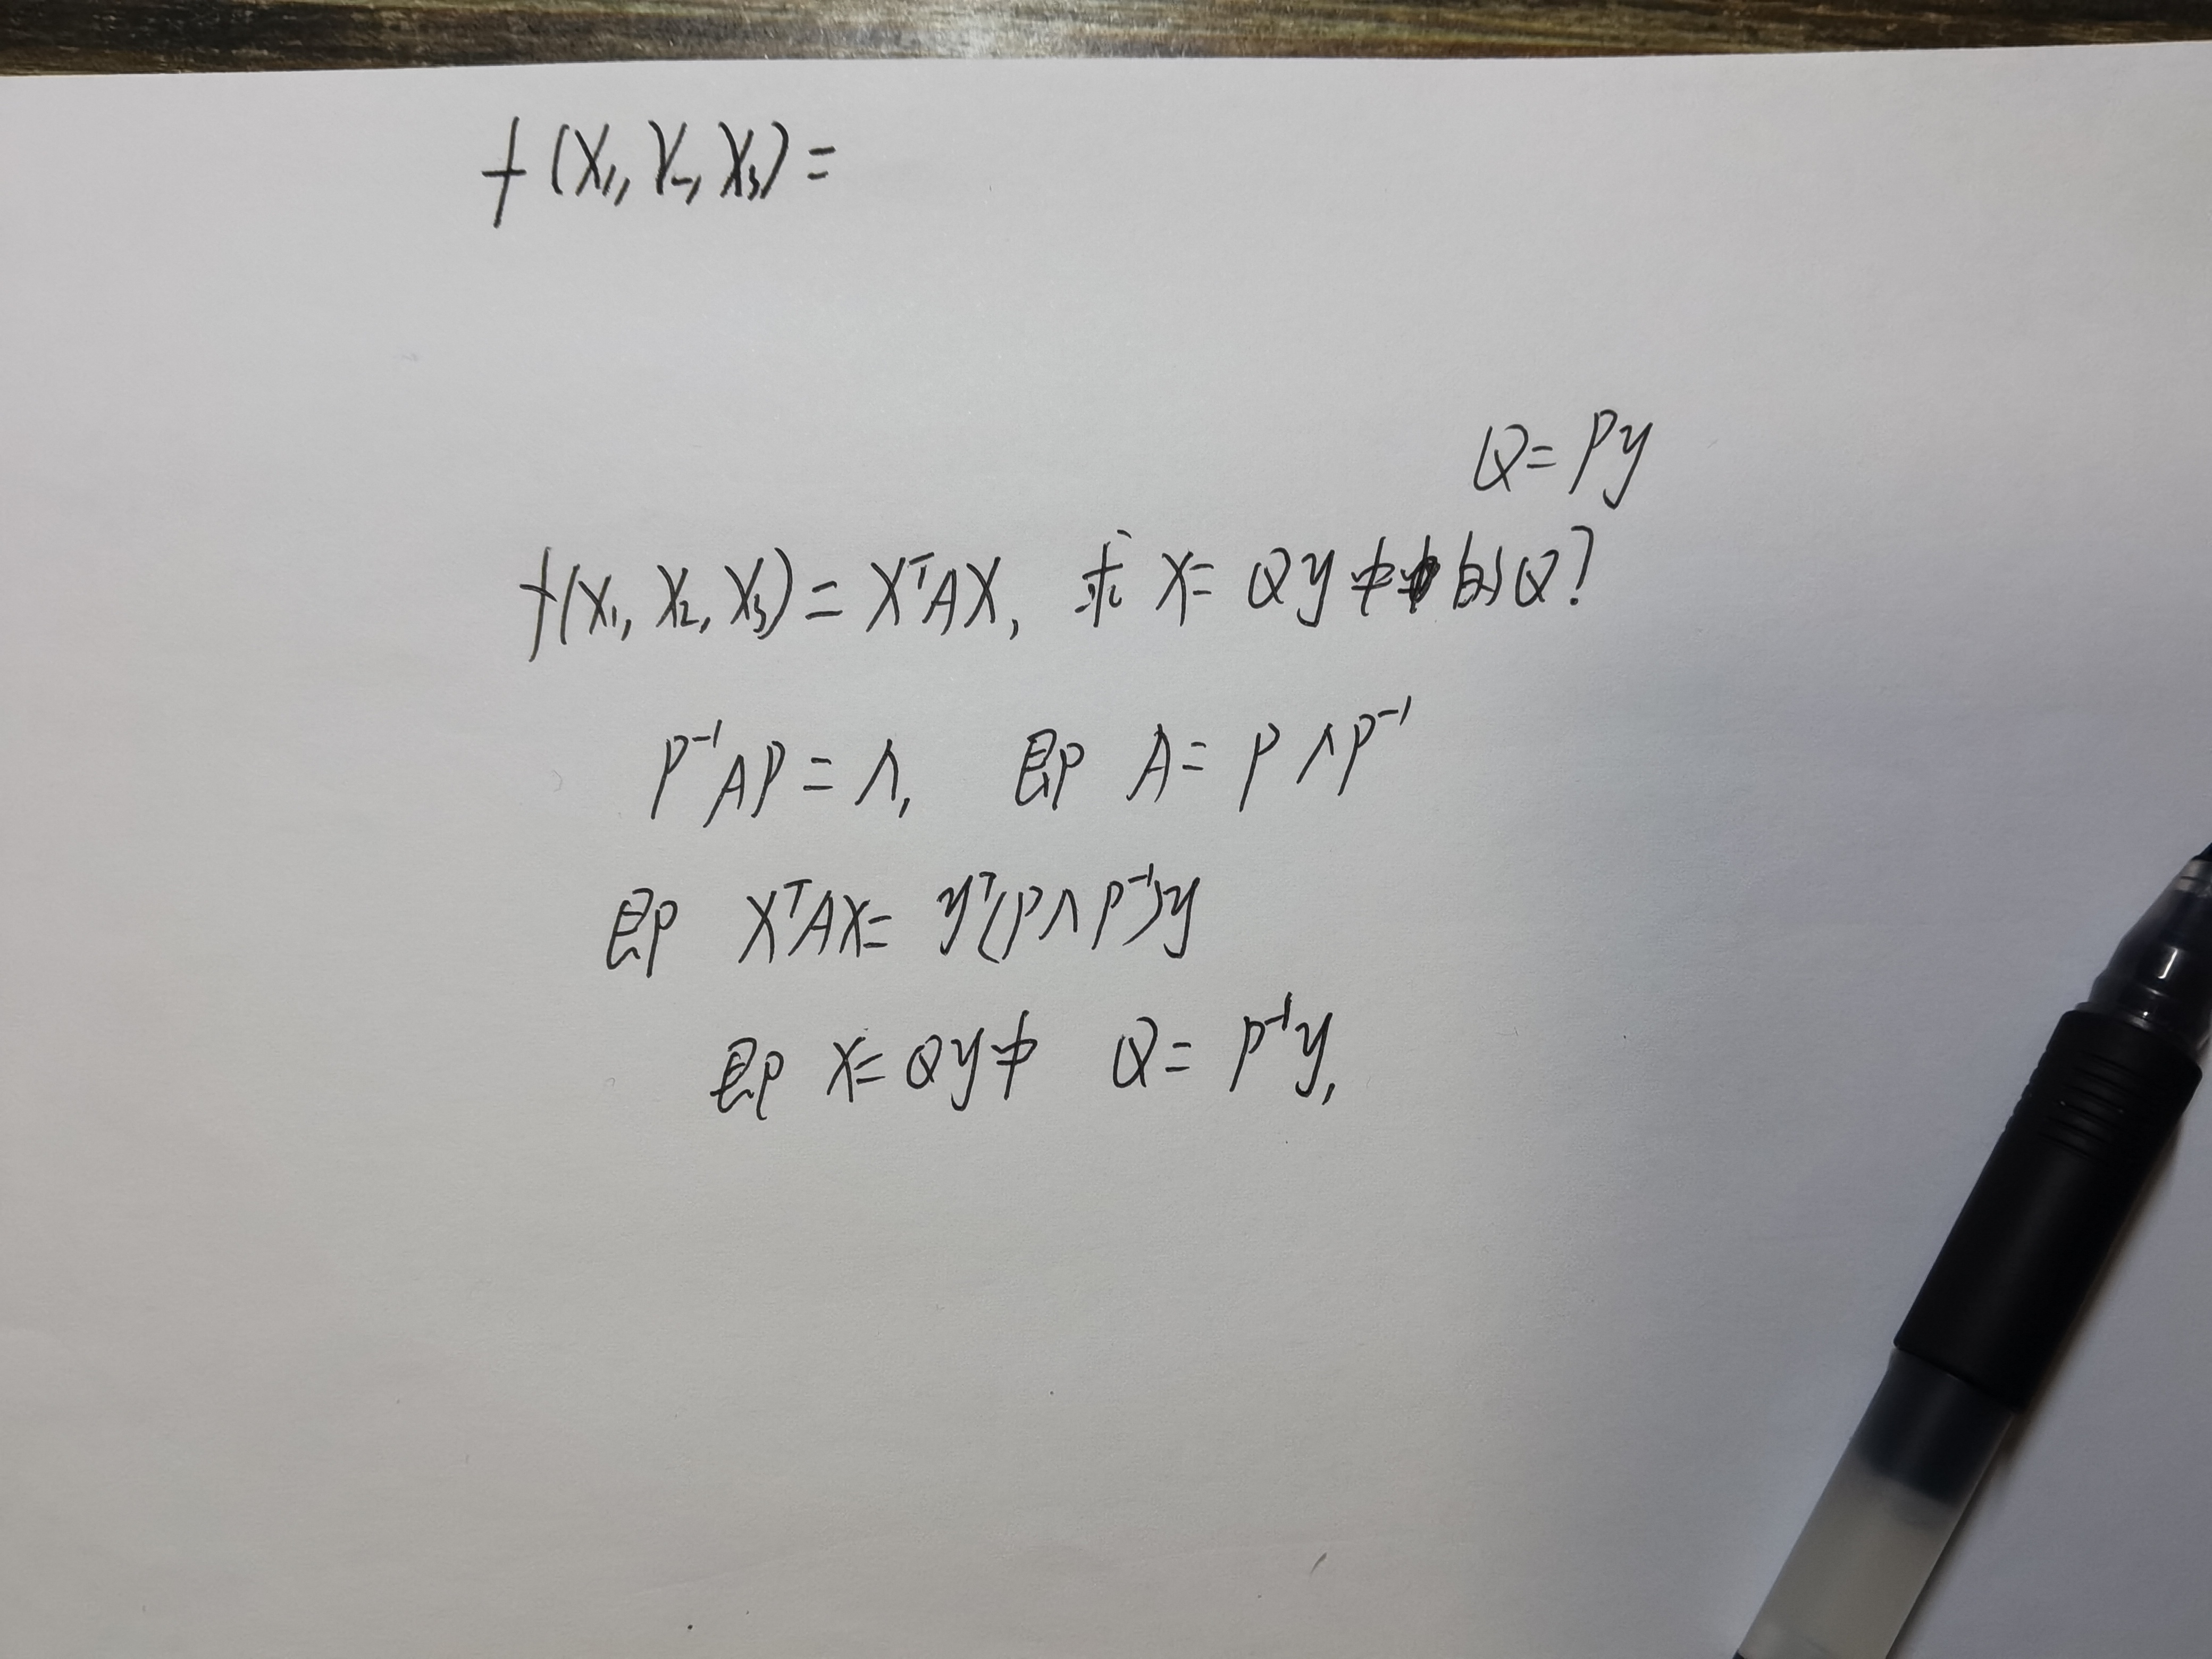 f(x₁, x₂, x₃) =
Q = Py
f(x₁, x₂, x₃) = xᵀAx, 求 x = Qy 中的Q?
P⁻¹AP = Λ, 即 A = PΛP⁻¹
即 xᵀAx = yᵀ(PΛP⁻¹)y
即 x = Qy中 Q = P⁻¹y,